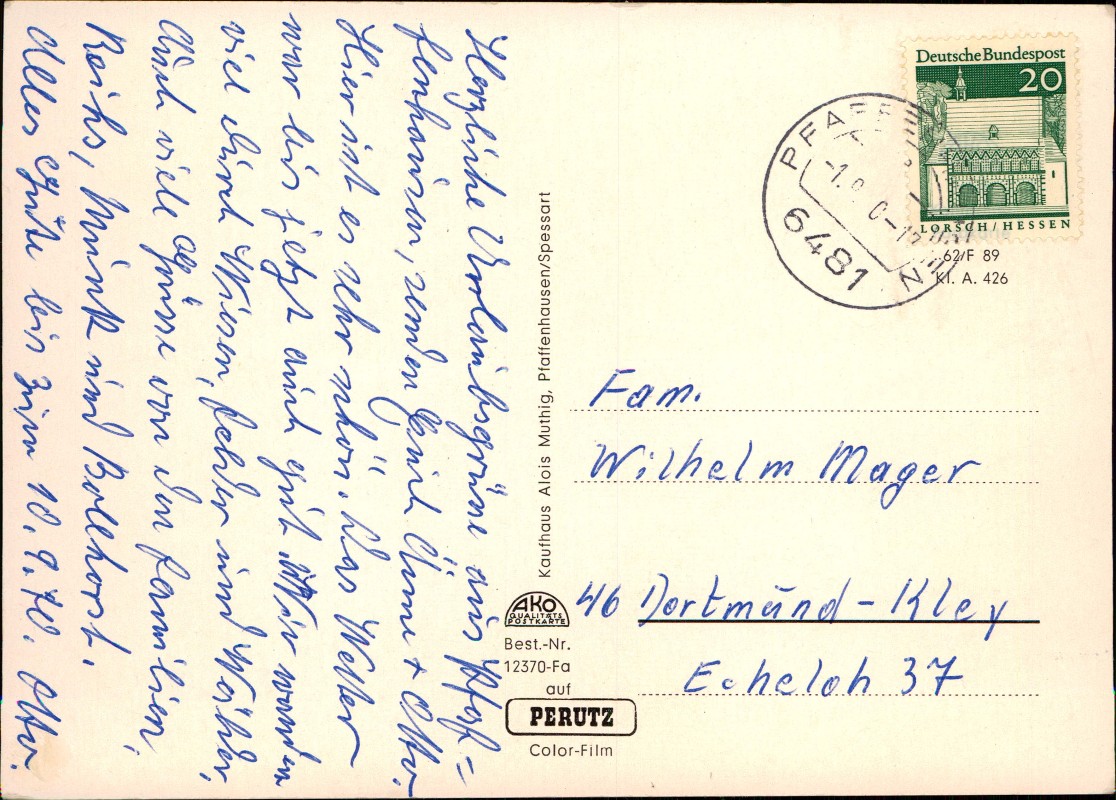 Herzliche Urlaubsgrüße aus Pfaf=
fenhausen, senden Euch Änne + Otto.
Hier ist es sehr schön. Das Wetter
war bis jetzt auch gut. Wir wandern
viel durch Wiesen, Felder und Wälder.
Auch viele Grüsse von den Familien,
Reihs, Munk und Bollhorst.
Alles Gute bis zum 10.9.70. Otto.
Kaufhaus Alois Muthig, Pfaffenhausen/Spessart
AKO
QUALITÄTS
POSTKARTE
Best.-Nr.
12370-Fa
auf
PERUTZ
Color-Film
Deutsche Bundespost
20
LORSCH/HESSEN
PFAFF
6481
62/F 89
Kl. A. 426
Fam.
Wilhelm Mager
46 Dortmund-Kley
Echeloh 37